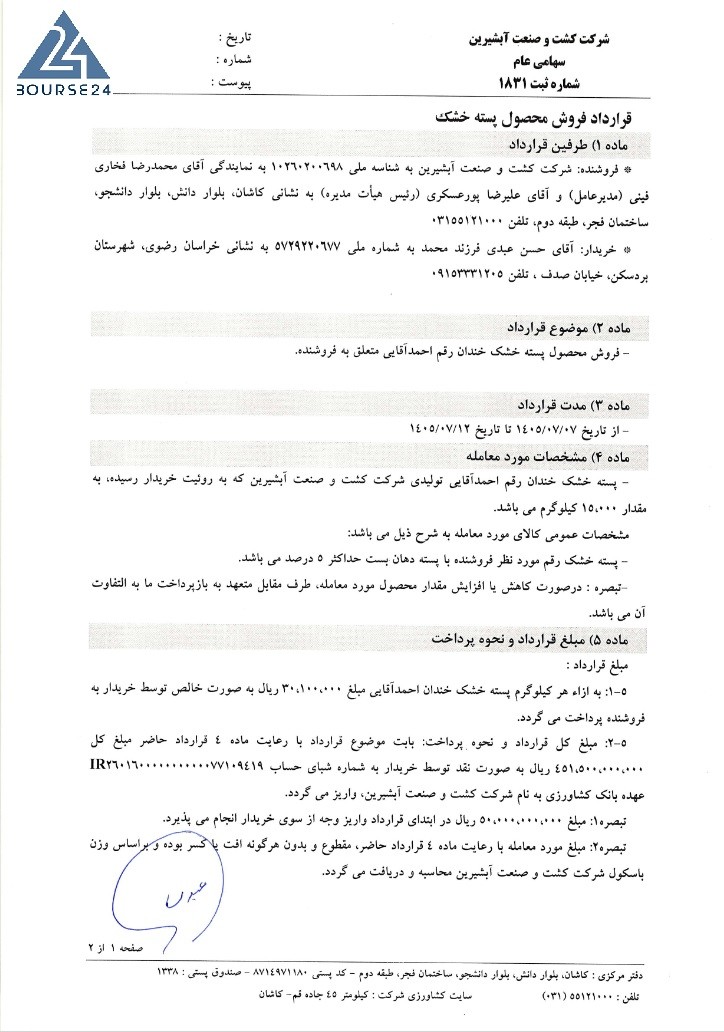 BOURSE24
شرکت کشت و صنعت آبشیرین
سهامی عام
شماره ثبت ۱۸۳۱
تاریخ :
شماره :
پیوست :
قرارداد فروش محصول پسته خشک
ماده ۱) طرفین قرارداد
* فروشنده: شرکت کشت و صنعت آبشیرین به شناسه ملی ۱۰۲۶۰۲۰۰۶۹۸ به نمایندگی آقای محمدرضا فخاری
فینی (مدیرعامل) و آقای علیرضا پورعسکری (رئیس هیأت مدیره) به نشانی کاشان، بلوار دانش، بلوار دانشجو،
ساختمان فجر، طبقه دوم، تلفن ۰۳۱۵۵۱۲۱۰۰۰
* خریدار: آقای حسن عبدی فرزند محمد به شماره ملی ۵۷۲۹۲۲۰۶۷۷ به نشانی خراسان رضوی، شهرستان
بردسکن، خیابان صدف ، تلفن ۰۹۱۵۳۳۳۱۲۰۵
ماده ۲) موضوع قرارداد
- فروش محصول پسته خشک خندان رقم احمدآقایی متعلق به فروشنده.
ماده ۳) مدت قرارداد
- از تاریخ ۱۴۰۵/۰۷/۰۷ تا تاریخ ۱۴۰۵/۰۷/۱۲
ماده ۴) مشخصات مورد معامله
- پسته خشک خندان رقم احمدآقایی تولیدی شرکت کشت و صنعت آبشیرین که به روئیت خریدار رسیده، به
مقدار ۱۵,۰۰۰ کیلوگرم می باشد.
مشخصات عمومی کالای مورد معامله به شرح ذیل می باشد:
- پسته خشک رقم مورد نظر فروشنده با پسته دهان بست حداکثر ۵ درصد می باشد.
-تبصره : درصورت کاهش یا افزایش مقدار محصول مورد معامله، طرف مقابل متعهد به بازپرداخت ما به التفاوت
آن می باشد.
ماده ۵) مبلغ قرارداد و نحوه پرداخت
مبلغ قرارداد :
۵-۱: به ازاء هر کیلوگرم پسته خشک خندان احمدآقایی مبلغ ۳۰,۱۰۰,۰۰۰ ریال به صورت خالص توسط خریدار به
فروشنده پرداخت می گردد.
۵-۲: مبلغ کل قرارداد و نحوه پرداخت: بابت موضوع قرارداد با رعایت ماده ۴ قرارداد حاضر مبلغ کل
۴۵۱,۵۰۰,۰۰۰,۰۰۰ ریال به صورت نقد توسط خریدار به شماره شبای حساب IR۲۶۰۱۶۰۰۰۰۰۰۰۰۰۰۰۷۷۱۰۹۴۱۹
عهده بانک کشاورزی به نام شرکت کشت و صنعت آبشیرین، واریز می گردد.
تبصره۱: مبلغ ۵۰,۰۰۰,۰۰۰,۰۰۰ ریال در ابتدای قرارداد واریز وجه از سوی خریدار انجام می پذیرد.
تبصره۲: مبلغ مورد معامله با رعایت ماده ۴ قرارداد حاضر، مقطوع و بدون هرگونه افت یا کسر بوده و براساس وزن
باسکول شرکت کشت و صنعت آبشیرین محاسبه و دریافت می گردد.
صفحه ۱ از ۲
دفتر مرکزی : کاشان، بلوار دانش، بلوار دانشجو، ساختمان فجر، طبقه دوم - کد پستی ۸۷۱۴۹۷۱۱۸۰ - صندوق پستی : ۱۳۳۸
تلفن : ۵۵۱۲۱۰۰۰ (۰۳۱) سایت کشاورزی شرکت : کیلومتر ۴۵ جاده قم- کاشان